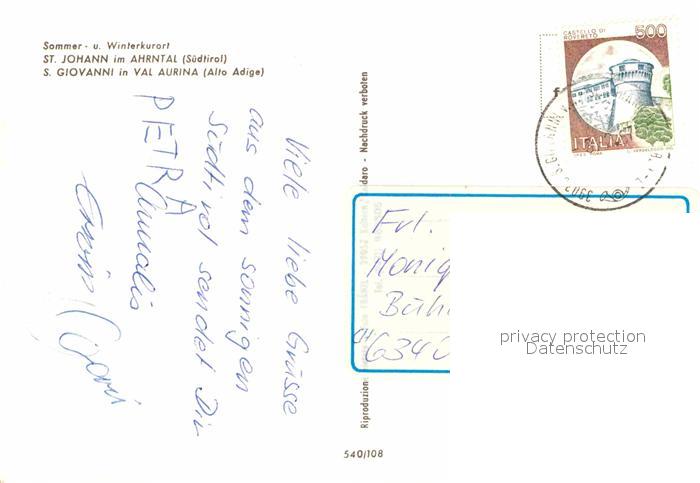 Sommer- u. Winterkurort
ST. JOHANN im AHRNTAL (Südtirol)
S. GIOVANNI in VAL AURINA (Alto Adige)
Viele liebe Grüsse
aus dem sonnigen
Südtirol sendet Dir
PETRA
Nachdruck verboten
Riproduzion
540/108
CASTELLO DI
ROVERETO
500
ITALIA
Frl.
Moniq
Büh
CH 6340
privacy protection
Datenschutz